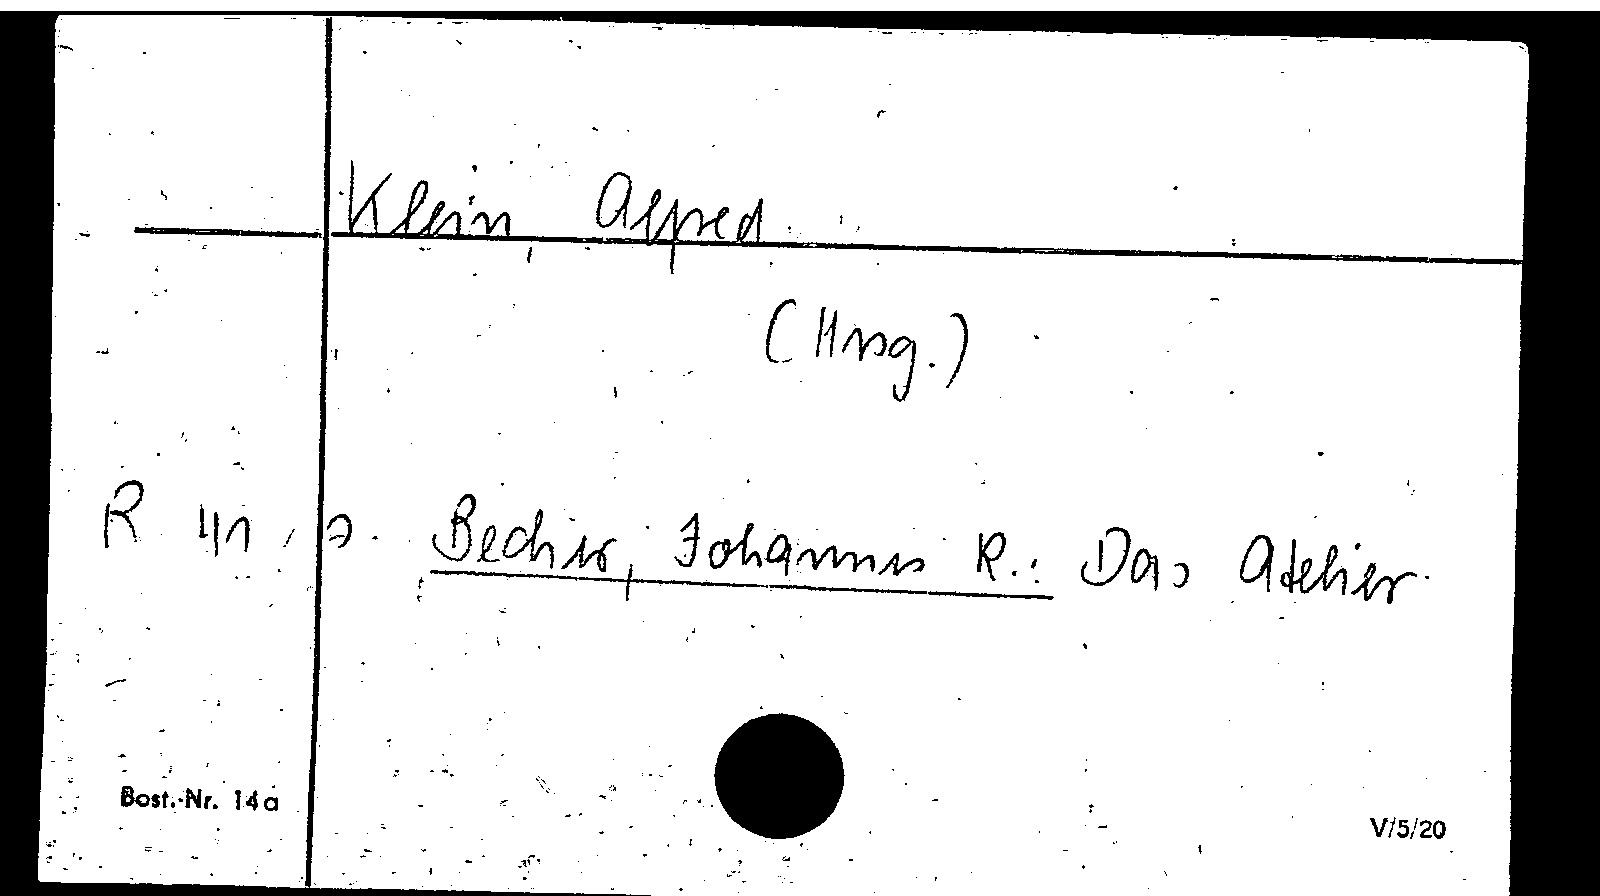 Klein, Alfred
(Hrsg.)
R 41, Becher, Johannes R.: Das Atelier.
Best.-Nr. 14a
V/5/20